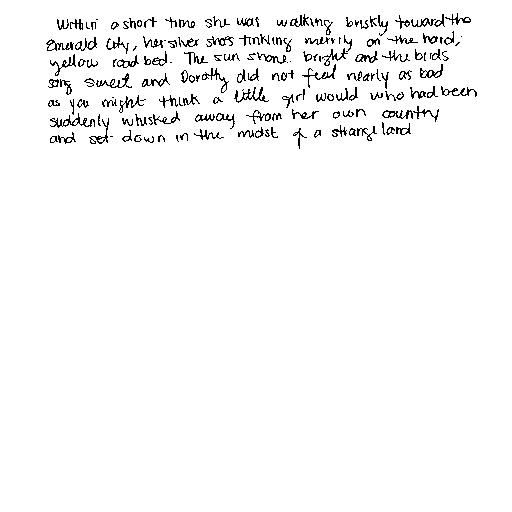 Within a short time she was walking briskly toward the
Emerald City, her silver shoes tinkling merrily on the hard,
yellow road bed. The sun shone bright and the birds
song sweet and Dorothy did not feel nearly as bad
as you might think a little girl would who had been
suddenly whisked away from her own country
and set down in the midst of a strange land